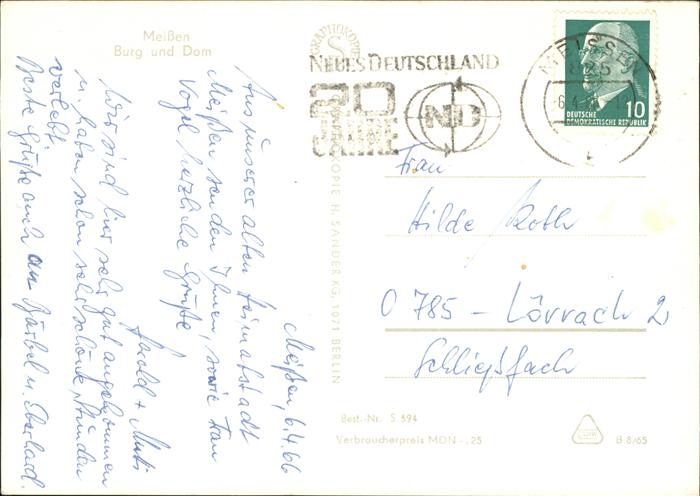 Meißen
Burg und Dom
Meißen, 6.4.66
Aus unserer alten Heimatstadt
Meißen senden Ihnen, sowie Frau
Vogel herzliche Grüße
+
Wir sind hier sehr gut angekommen
u. haben schon sehr schöne Stunden
verlebt.
Beste Grüße auch an Bärbel u. Eberhard.
GRAPHOKOPIE H. SANDER KG, 1071 BERLIN
NEUES DEUTSCHLAND
20
JAHRE
JAHRE
ND
MEISSEN
825
10
DEUTSCHE
DEMOKRATISCHE REPUBLIK
Frau
Hilde Roth
0 785 - Lörrach 2
Schließfach
Best.-Nr. S 594
Verbraucherpreis MDN -,25
B 8/65